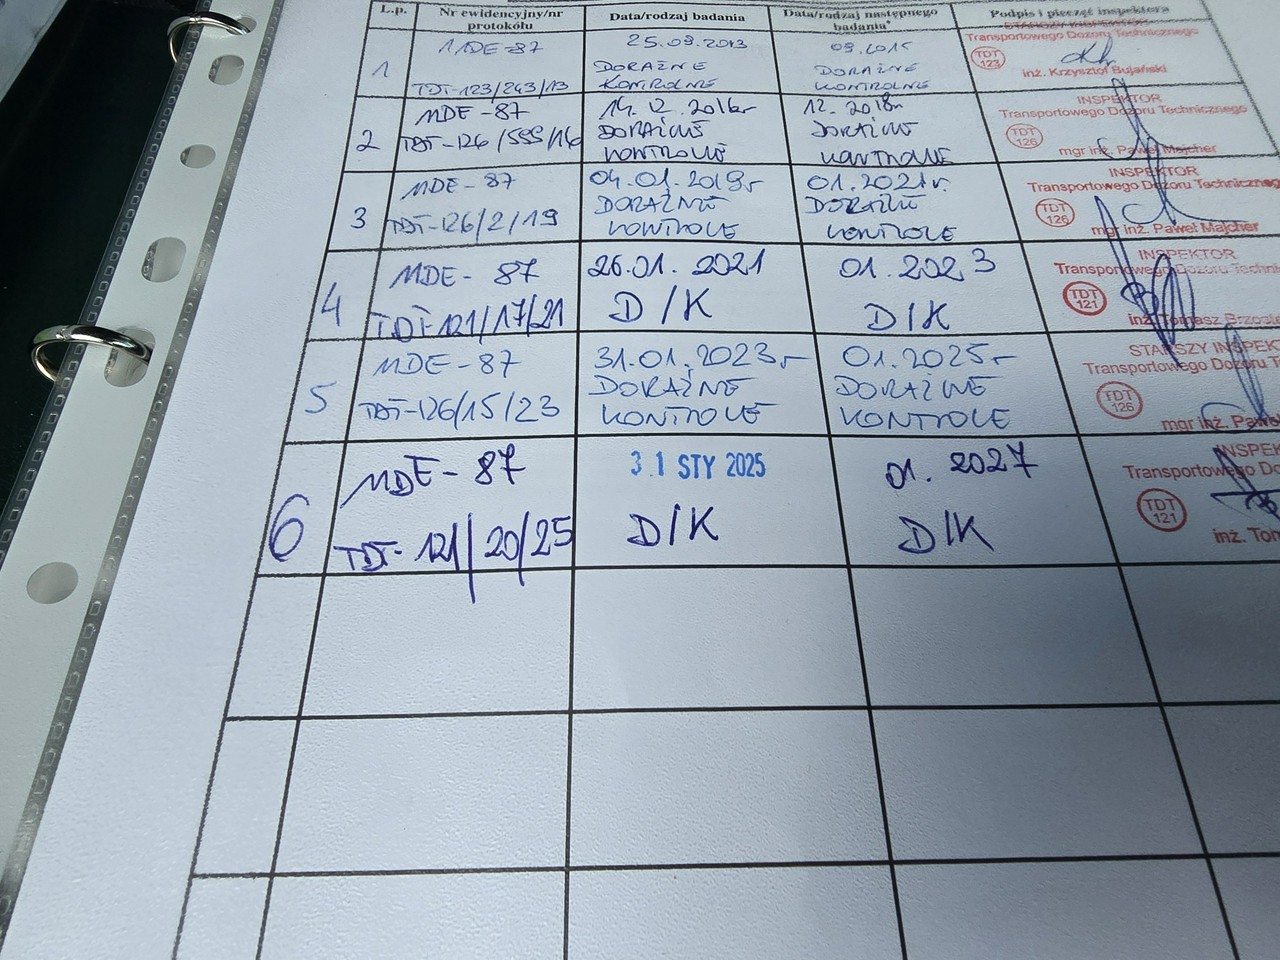 L.p. Nr ewidencyjny/nr protokółu Data/rodzaj badania Data/rodzaj następnego badania* Podpis i pieczęć inspektora
1 MDE-87 25.09.2013 09.2015 STARSZY INSPEKTOR
Transportowego Dozoru Technicznego
TDT-123/243/13 DORAŹNE KONTROLNE DORAŹNE KONTROLNE TDT 123
inż. Krzysztof Bujański
2 MDE-87 14.12.2016r 12.2018r INSPEKTOR
Transportowego Dozoru Technicznego
TDT-126/555/16 DORAŹNE KONTROLNE DORAŹNE KONTROLNE TDT 126
mgr inż. Paweł Majcher
3 MDE-87 04.01.2019r 01.2021r. INSPEKTOR
Transportowego Dozoru Techniczneg
TDT-126/2/19 DORAŹNE KONTROLE DORAŹNE KONTROLE TDT 126
mgr inż. Paweł Majcher
4 MDE-87 26.01.2021 01.2023 INSPEKTOR
Transportowego Dozoru Techni
TDT-121/17/21 D/K D/K TDT 121
inż. Tomasz Brzos
5 MDE-87 31.01.2023r 01.2025r STARSZY INSPEKT
Transportowego Dozoru T
TDT-126/15/23 DORAŹNE KONTROLE DORAŹNE KONTROLE TDT 126
mgr inż. Paweł
6 MDE-87 31 STY 2025 01.2027 INSPEK
Transportowego Do
TDT-121/20/25 D/K D/K TDT 121
inż. Tom